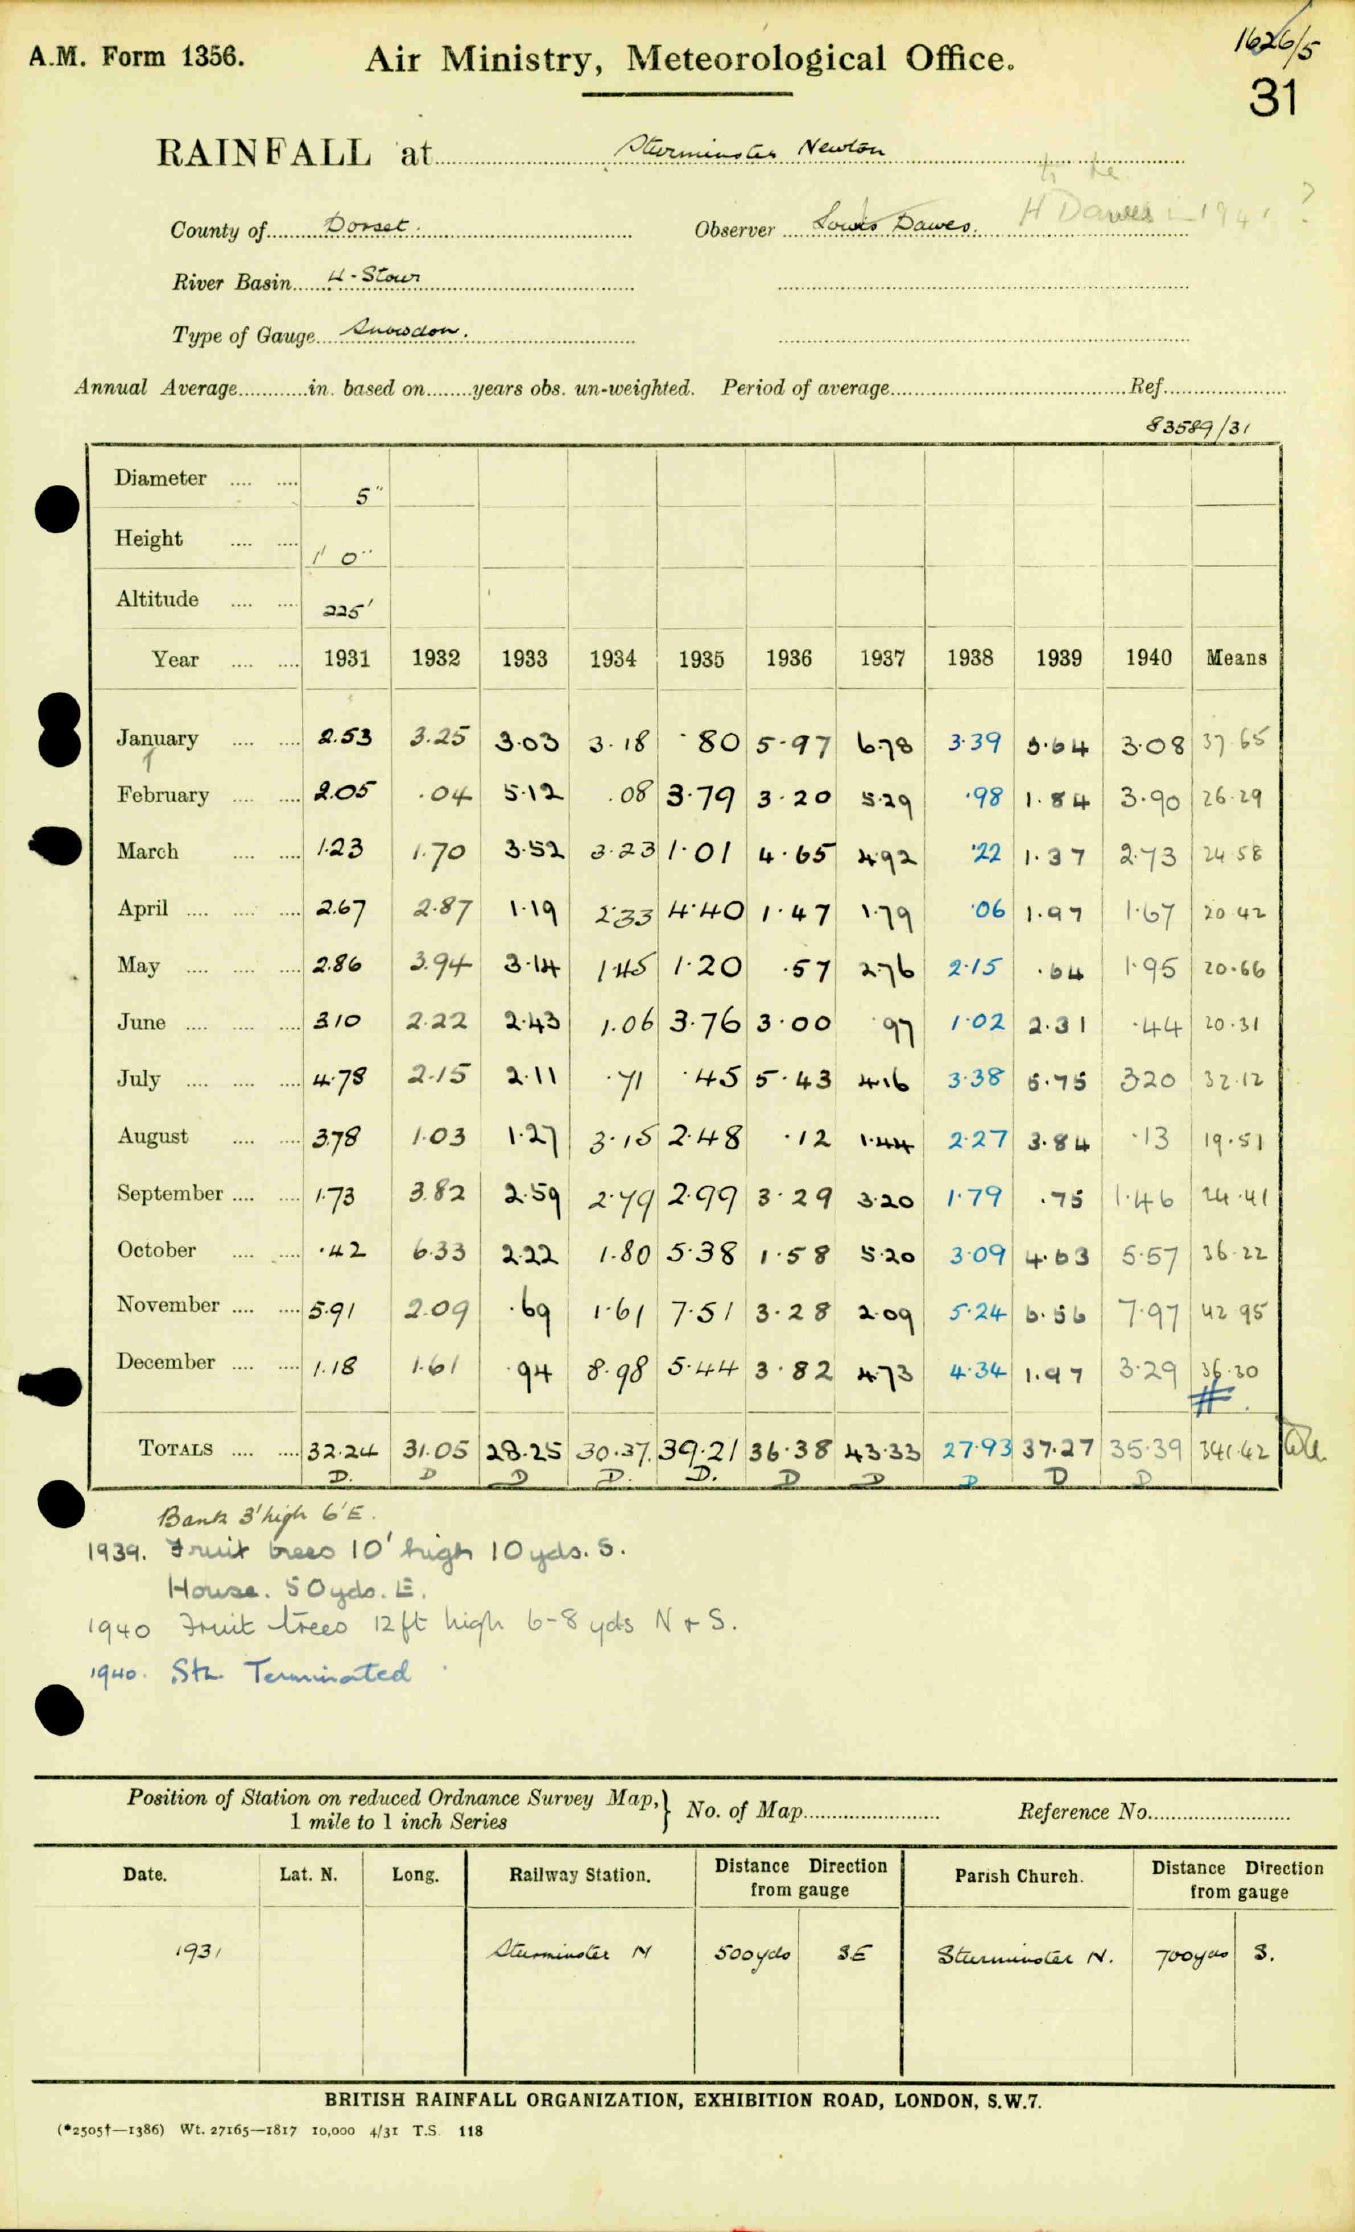 A.M. Form 1356.
Air Ministry, Meteorological Office.
1626/5
31
RAINFALL at Sturminster Newton
County of Dorset.
Observer Louis Dawes. H Dawes in 1941 ?
River Basin 4-Stour
Type of Gauge Snowdon.
Annual Average in. based on years obs. un-weighted. Period of average Ref.
83589/31
Diameter 5"
Height 1' 0"
Altitude 225'
Year 1931 1932 1933 1934 1935 1936 1937 1938 1939 1940 Means
January 2.53 3.25 3.03 3.18 .80 5.97 6.78 3.39 5.64 3.08 37.65
February 2.05 .04 5.12 .08 3.79 3.20 5.29 .98 1.84 3.90 26.29
March 1.23 1.70 3.52 3.23 1.01 4.65 4.92 .22 1.37 2.73 24.58
April 2.67 2.87 1.19 2.33 4.40 1.47 1.79 .06 1.97 1.67 20.42
May 2.86 3.94 3.14 1.45 1.20 .57 2.76 2.15 .64 1.95 20.66
June 3.10 2.22 2.43 1.06 3.76 3.00 .97 1.02 2.31 .44 20.31
July 4.78 2.15 2.11 .71 .45 5.43 4.16 3.38 5.75 3.20 32.12
August 3.78 1.03 1.27 3.15 2.48 .12 1.44 2.27 3.84 .13 19.51
September 1.73 3.82 2.59 2.79 2.99 3.29 3.20 1.79 .75 1.46 24.41
October .42 6.33 2.22 1.80 5.38 1.58 5.20 3.09 4.63 5.57 36.22
November 5.91 2.09 .69 1.61 7.51 3.28 2.09 5.24 6.56 7.97 42.95
December 1.18 1.61 .94 8.98 5.44 3.82 4.73 4.34 1.97 3.29 36.30
#
TOTALS 32.24 31.05 28.25 30.37 39.21 36.38 43.33 27.93 37.27 35.39 341.42
D. D D D. D. D D D D D
Bank 3' high 6' E.
1939. Fruit trees 10' high 10yds. S.
House. 50yds. E.
1940 Fruit trees 12ft high 6-8 yds N + S.
1940. Stn. Terminated
Position of Station on reduced Ordnance Survey Map, 1 mile to 1 inch Series } No. of Map Reference No.
Date. Lat. N. Long. Railway Station. Distance Direction from gauge Parish Church. Distance Direction from gauge
1931 Sturminster N 500yds SE Sturminster N. 700yds S.
BRITISH RAINFALL ORGANIZATION, EXHIBITION ROAD, LONDON, S.W.7.
(*2505†—1386) Wt. 27165—1817 10,000 4/31 T.S. 118